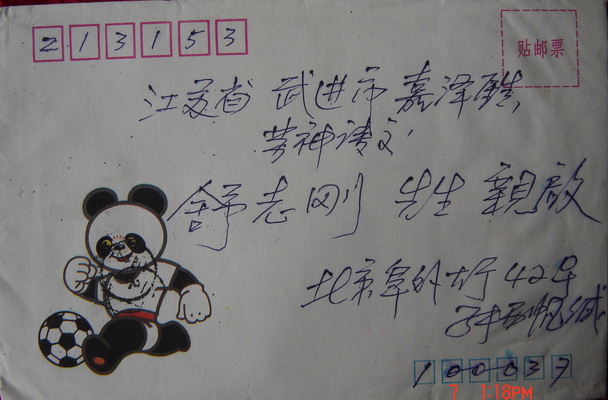 213153
贴邮票
江苏省 武进市 嘉泽
劳神请交
舒志刚 先生 親啟
北京阜外大街42号
缄
100037
7 1:18PM